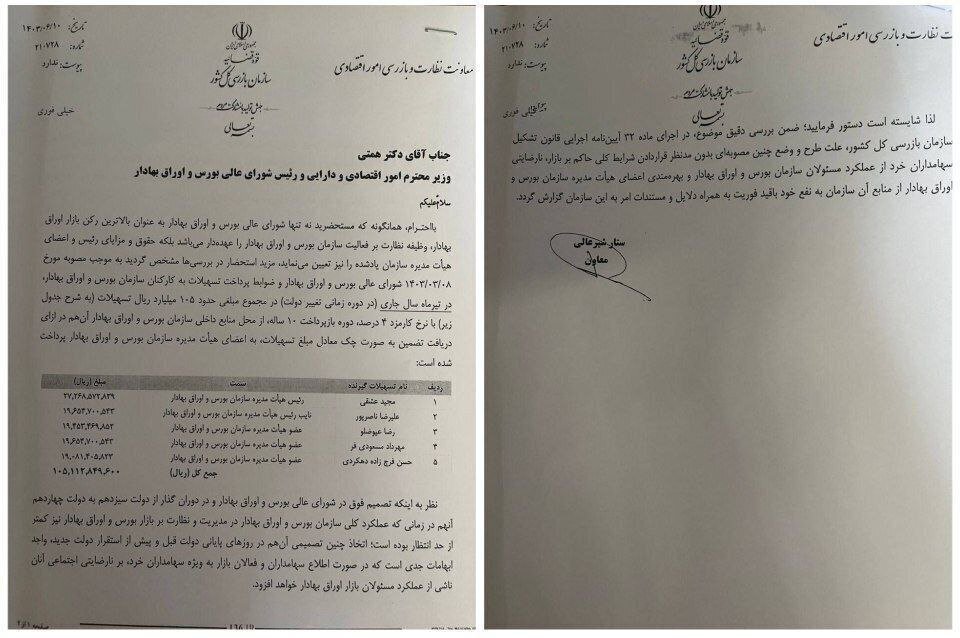 تاریخ: ۱۴۰۳/۰۶/۱۰
شماره: ۲۱۰۷۲۸
پیوست: ندارد
جمهوری اسلامی ایران
قوه قضاییه
سازمان بازرسی کل کشور
معاونت نظارت و بازرسی امور اقتصادی
خیلی فوری
بسمه تعالی
جناب آقای دکتر همتی
وزیر محترم امور اقتصادی و دارایی و رئیس شورای عالی بورس و اوراق بهادار
سلام علیکم
بااحترام، همانگونه که مستحضرید نه تنها شورای عالی بورس و اوراق بهادار به عنوان بالاترین رکن بازار اوراق
بهادار، وظیفه نظارت بر فعالیت سازمان بورس و اوراق بهادار را عهده‌دار می‌باشد بلکه حقوق و مزایای رئیس و اعضای
هیأت مدیره سازمان یادشده را نیز تعیین می‌نماید، مزید استحضار در بررسی‌ها مشخص گردید به موجب مصوبه مورخ
۱۴۰۳/۰۳/۰۸ شورای عالی بورس و اوراق بهادار و ضوابط پرداخت تسهیلات به کارکنان سازمان بورس و اوراق بهادار،
در تیرماه سال جاری (در دوره زمانی تغییر دولت) در مجموع مبلغی حدود ۱۰۵ میلیارد ریال تسهیلات (به شرح جدول
زیر) با نرخ کارمزد ۴ درصد، دوره بازپرداخت ۱۰ ساله، از محل منابع داخلی سازمان بورس و اوراق بهادار آن‌هم در ازای
دریافت تضمین به صورت چک معادل مبلغ تسهیلات، به اعضای هیأت مدیره سازمان بورس و اوراق بهادار پرداخت
شده است:
ردیف نام تسهیلات گیرنده سمت مبلغ (ریال)
۱ مجید عشقی رئیس هیأت مدیره سازمان بورس و اوراق بهادار ۲۷,۲۶۸,۵۷۲,۸۳۹
۲ علیرضا ناصرپور نایب رئیس هیأت مدیره سازمان بورس و اوراق بهادار ۱۹,۶۵۴,۷۰۰,۵۴۳
۳ رضا عیوضلو عضو هیأت مدیره سازمان بورس و اوراق بهادار ۱۹,۴۵۳,۴۶۹,۸۵۲
۴ مهرداد مسعودی فر عضو هیأت مدیره سازمان بورس و اوراق بهادار ۱۹,۶۵۴,۷۰۰,۵۴۳
۵ حسن فرج زاده دهکردی عضو هیأت مدیره سازمان بورس و اوراق بهادار ۱۹,۰۸۱,۴۰۵,۸۲۳
جمع کل (ریال) ۱۰۵,۱۱۲,۸۴۹,۶۰۰
نظر به اینکه تصمیم فوق در شورای عالی بورس و اوراق بهادار و در دوران گذار از دولت سیزدهم به دولت چهاردهم
آنهم در زمانی که عملکرد کلی سازمان بورس و اوراق بهادار در مدیریت و نظارت بر بازار بورس و اوراق بهادار نیز کمتر
از حد انتظار بوده است؛ اتخاذ چنین تصمیمی آن‌هم در روزهای پایانی دولت قبل و پیش از استقرار دولت جدید، واجد
ابهامات جدی است که در صورت اطلاع سهامداران و فعالان بازار به ویژه سهامداران خرد، بر نارضایتی اجتماعی آنان
ناشی از عملکرد مسئولان بازار اوراق بهادار خواهد افزود.
صفحه ۱ از ۲
تاریخ: ۱۴۰۳/۰۶/۱۰
شماره: ۲۱۰۷۲۸
پیوست: ندارد
جمهوری اسلامی ایران
قوه قضاییه
سازمان بازرسی کل کشور
ت نظارت و بازرسی امور اقتصادی
خیلی فوری
بسمه تعالی
لذا شایسته است دستور فرمایید؛ ضمن بررسی دقیق موضوع، در اجرای ماده ۳۲ آیین‌نامه اجرایی قانون تشکیل
سازمان بازرسی کل کشور، علت طرح و وضع چنین مصوبه‌ای بدون مدنظر قراردادن شرایط کلی حاکم بر بازار، نارضایتی
سهامداران خرد از عملکرد مسئولان سازمان بورس و اوراق بهادار و بهره‌مندی اعضای هیأت مدیره سازمان بورس و
اوراق بهادار از منابع آن سازمان به نفع خود باقید فوریت به همراه دلایل و مستندات امر به این سازمان گزارش گردد.
ستار شیرعالی
معاون